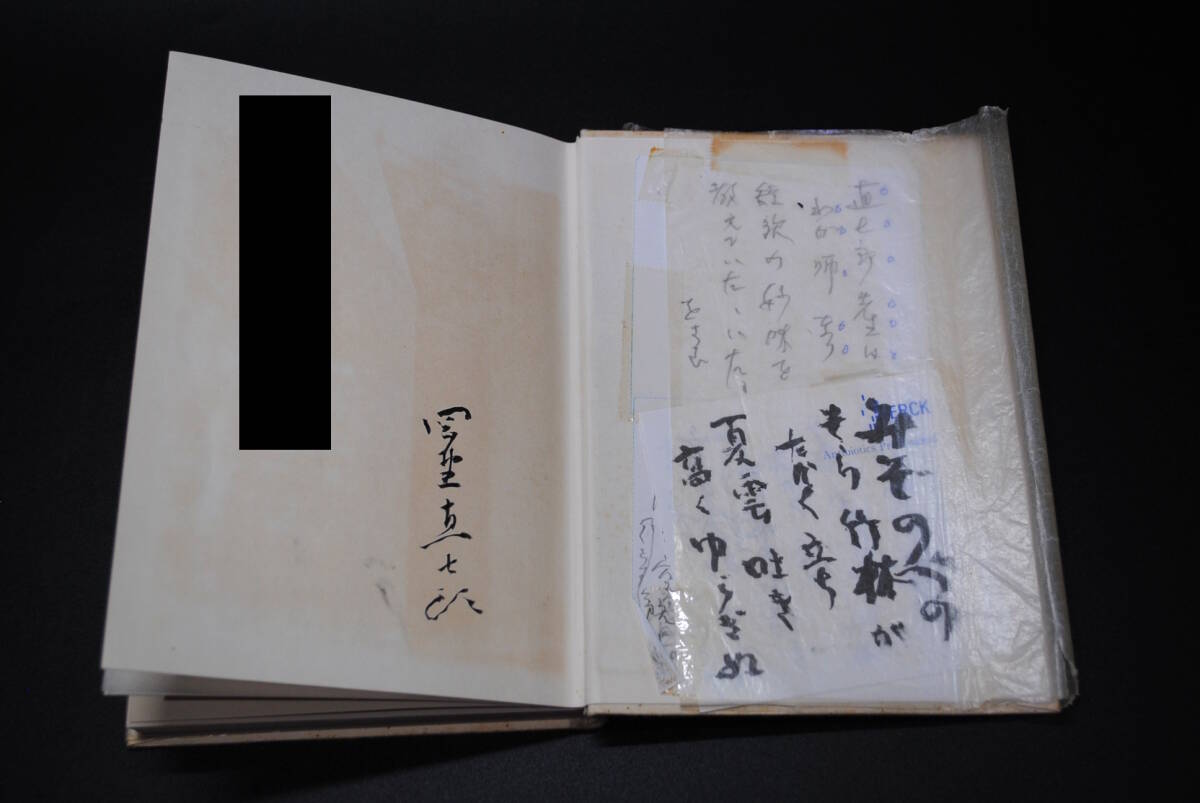 直七郎先生は
わが師
短歌の妙味を
教えていただいた。
をさむ
MERCK
みそのべの
竹林が
たかく立ち
夏雲吐き
高くゆらぎぬ
岡野直七郎